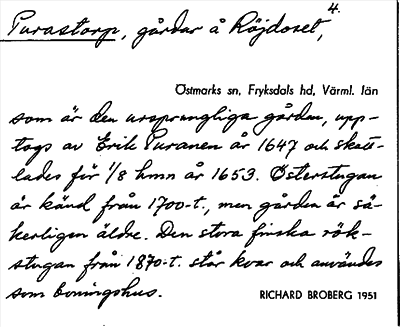 4.
Purastorp, gårdar å Röjdoset,
Östmarks sn, Fryksdals hd, Värml. län
som är den ursprungliga gården, upp-
togs av Erik Puranen år 1647 och skatt-
lades för 1/8 hmn år 1653. Österstugan
är känd från 1700-t., men gården är sä-
kerligen äldre. Den stora finska rök-
stugan från 1870-t. står kvar och användes
som boningshus.
RICHARD BROBERG 1951